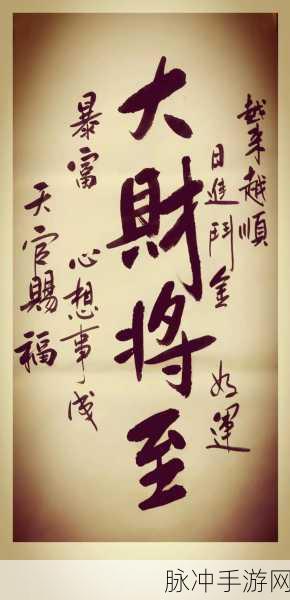 越来越順
日進鬥金 好運
大財将至
暴富 心想事成
天官賜福
脉冲手游网